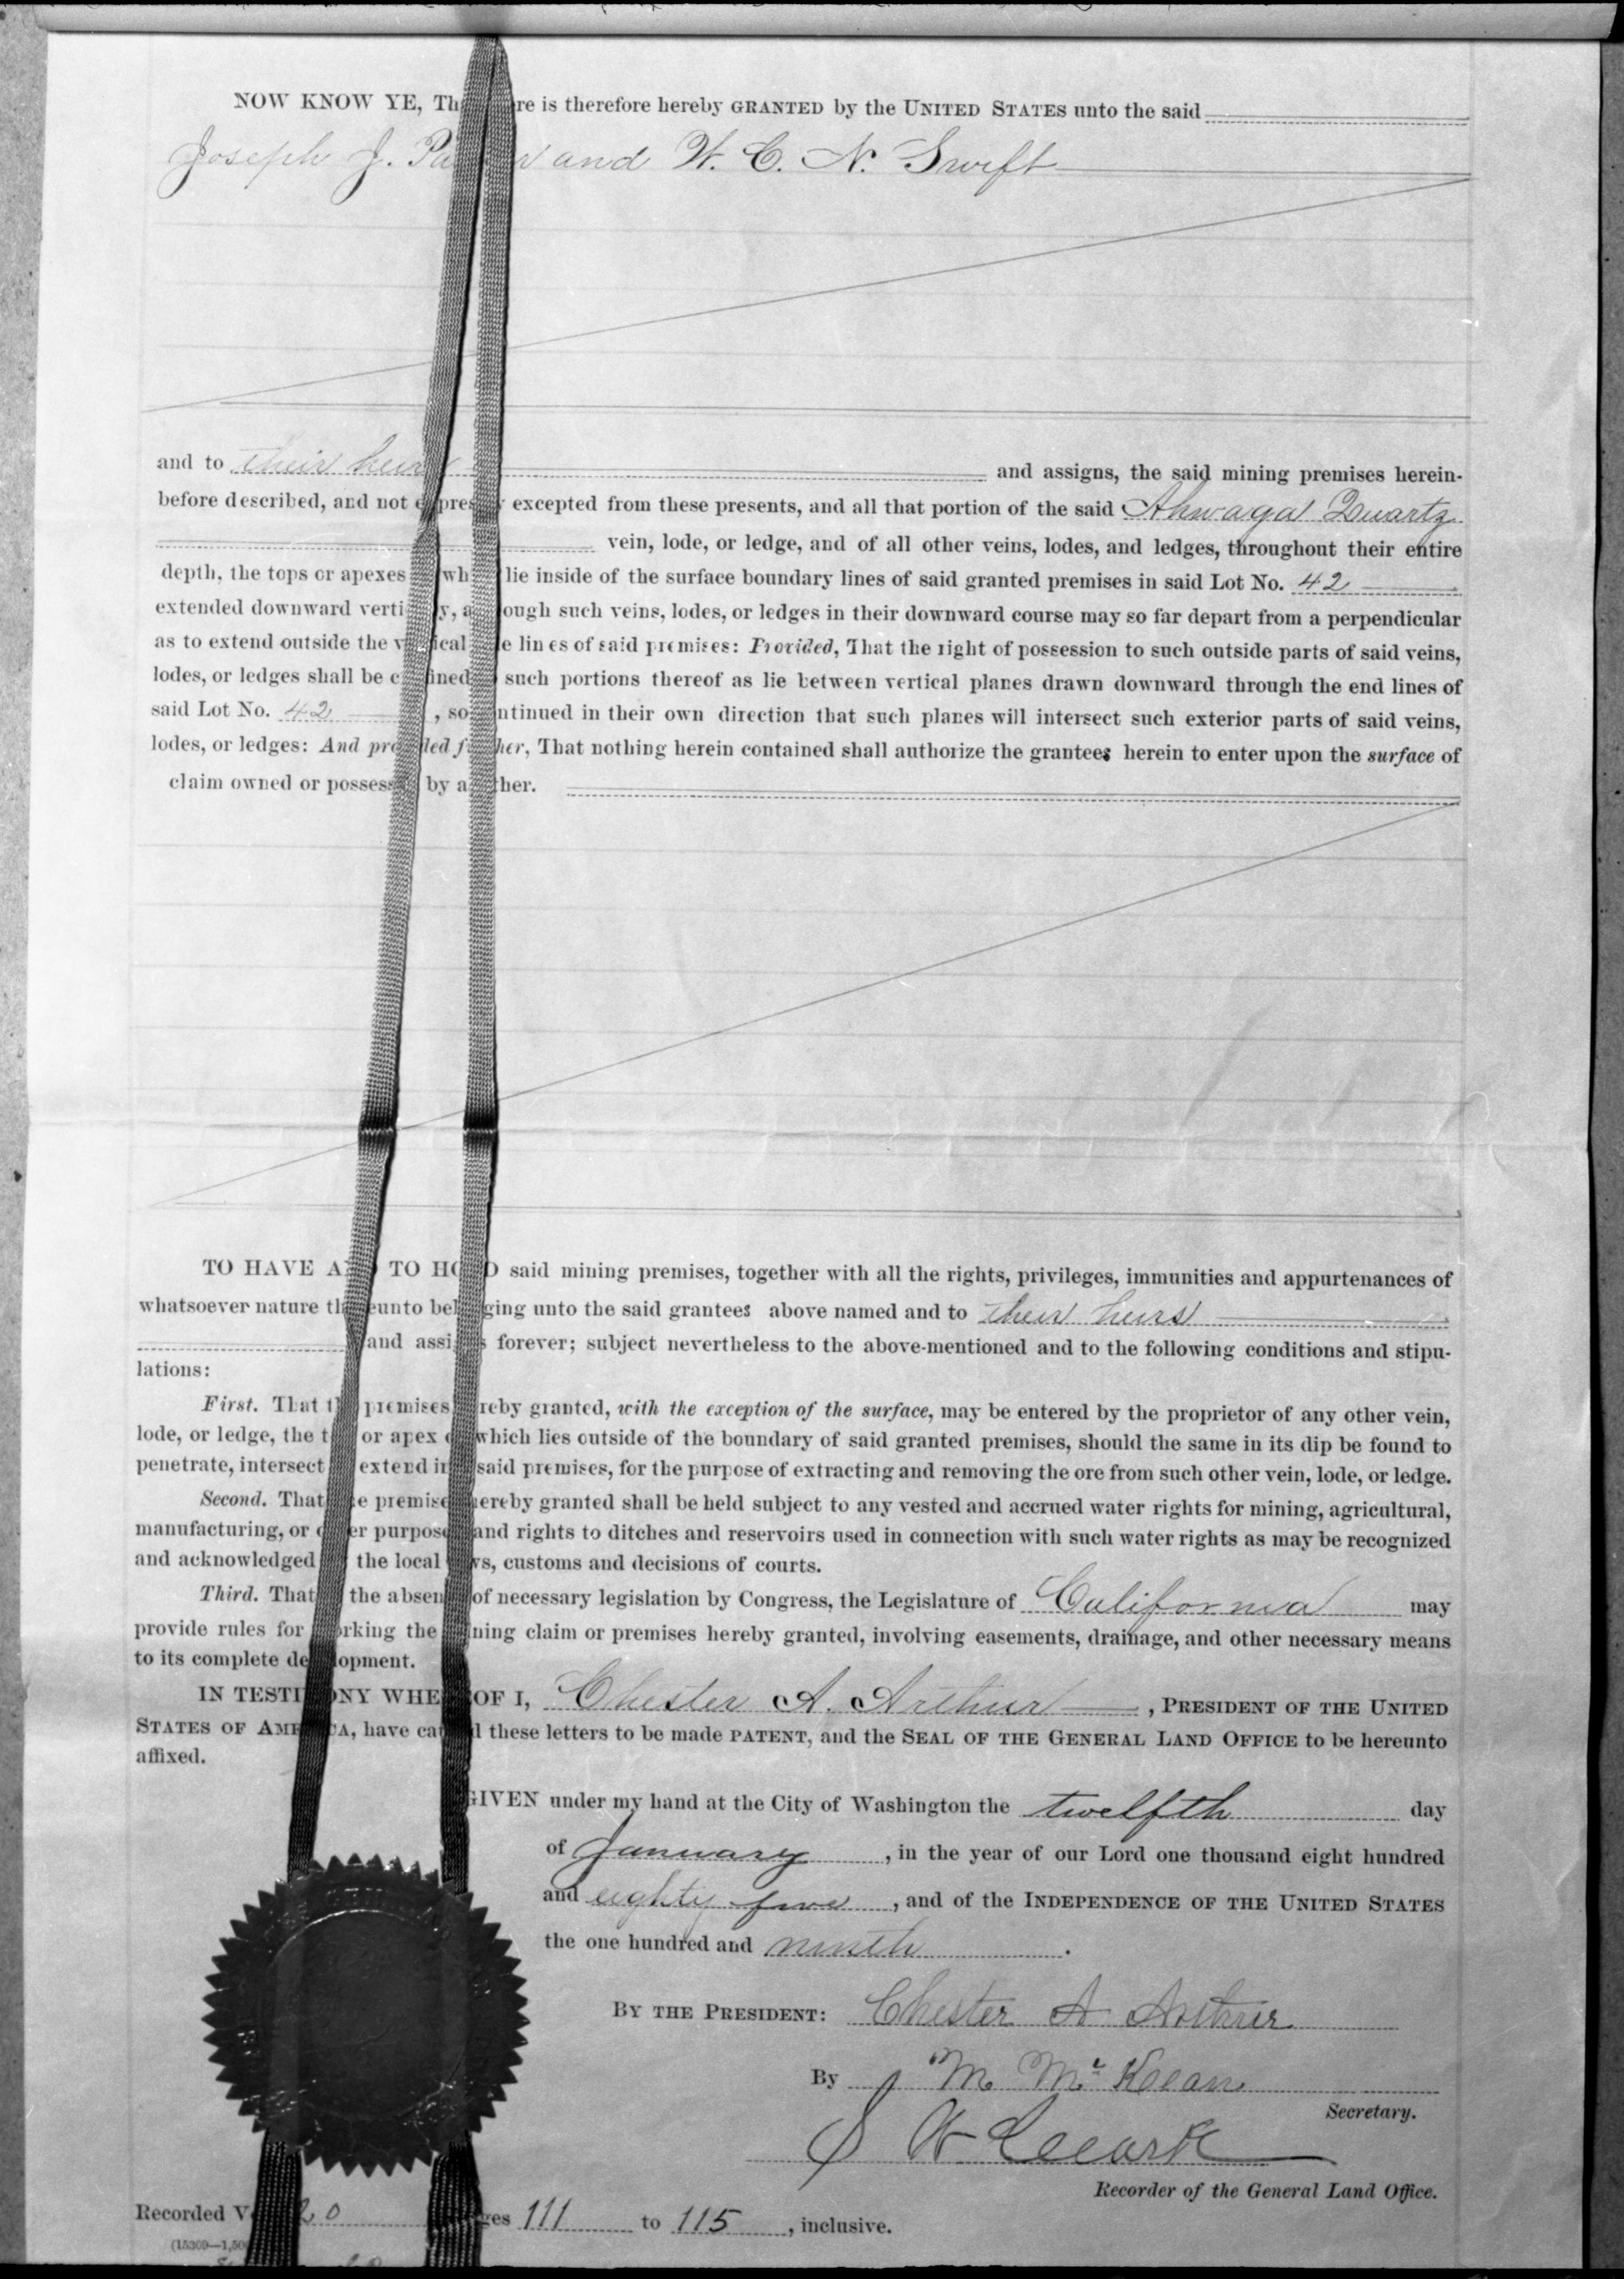 NOW KNOW YE, Th re is therefore hereby GRANTED by the UNITED STATES unto the said
Joseph J. and W. C. N. Swift
and to their heirs and assigns, the said mining premises herein-
before described, and not expressly excepted from these presents, and all that portion of the said Ahwaga Quartz
vein, lode, or ledge, and of all other veins, lodes, and ledges, throughout their entire
depth, the tops or apexes wh lie inside of the surface boundary lines of said granted premises in said Lot No. 42
extended downward vertically, although such veins, lodes, or ledges in their downward course may so far depart from a perpendicular
as to extend outside the vertical side lines of said premises: Provided, That the right of possession to such outside parts of said veins,
lodes, or ledges shall be confined to such portions thereof as lie between vertical planes drawn downward through the end lines of
said Lot No. 42, so continued in their own direction that such planes will intersect such exterior parts of said veins,
lodes, or ledges: And provided further, That nothing herein contained shall authorize the grantees herein to enter upon the surface of
claim owned or possessed by another.
TO HAVE AND TO HOLD said mining premises, together with all the rights, privileges, immunities and appurtenances of
whatsoever nature thereunto belonging unto the said grantees above named and to their heirs
and assigns forever; subject nevertheless to the above-mentioned and to the following conditions and stipu-
lations:
First. That the premises hereby granted, with the exception of the surface, may be entered by the proprietor of any other vein,
lode, or ledge, the top or apex of which lies outside of the boundary of said granted premises, should the same in its dip be found to
penetrate, intersect or extend into said premises, for the purpose of extracting and removing the ore from such other vein, lode, or ledge.
Second. That the premises hereby granted shall be held subject to any vested and accrued water rights for mining, agricultural,
manufacturing, or other purposes and rights to ditches and reservoirs used in connection with such water rights as may be recognized
and acknowledged by the local laws, customs and decisions of courts.
Third. That in the absence of necessary legislation by Congress, the Legislature of California may
provide rules for working the mining claim or premises hereby granted, involving easements, drainage, and other necessary means
to its complete development.
IN TESTIMONY WHEREOF I, Chester A. Arthur, PRESIDENT OF THE UNITED
STATES OF AMERICA, have caused these letters to be made PATENT, and the SEAL OF THE GENERAL LAND OFFICE to be hereunto
affixed.
GIVEN under my hand at the City of Washington the twelfth day
of January, in the year of our Lord one thousand eight hundred
and eighty five, and of the INDEPENDENCE OF THE UNITED STATES
the one hundred and ninth.
BY THE PRESIDENT: Chester A Arthur
By M McKean
Secretary.
S W Clark
Recorder of the General Land Office.
Recorded V 20 ges 111 to 115, inclusive.